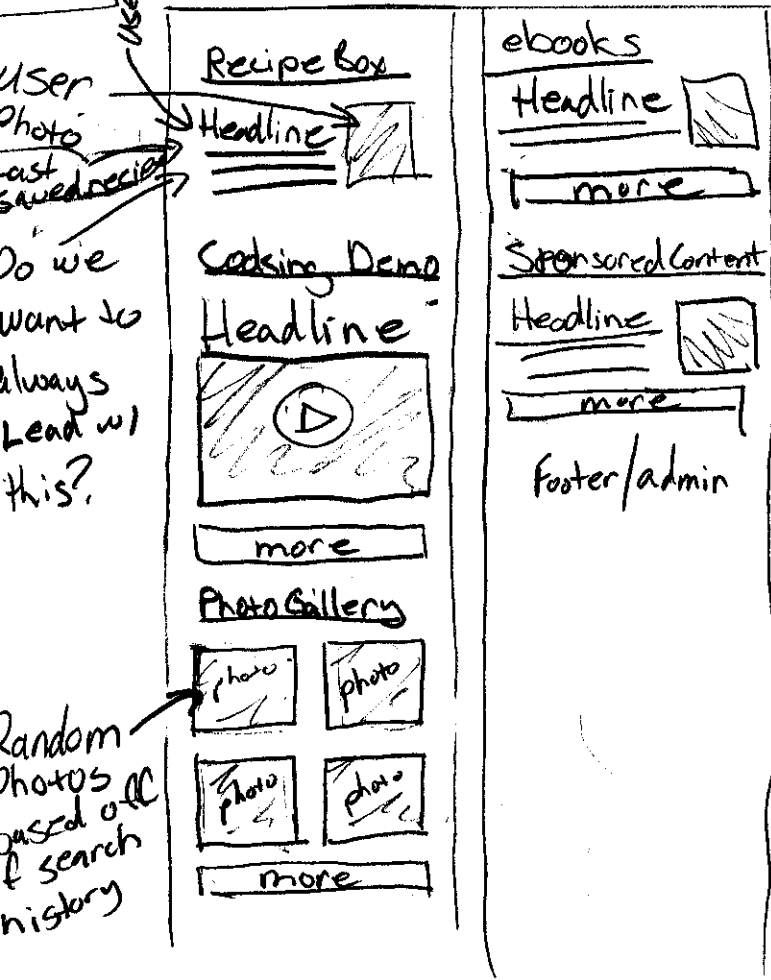 Use
User
Photo
Last
saved recipe
Do we
want to
always
Lead w/
this?
Random
Photos
based off
of search
history
Recipe Box
Headline
Cooking Demo
Headline
more
Photo Gallery
photo photo
photo photo
more
ebooks
Headline
more
Sponsored Content
Headline
more
Footer/admin